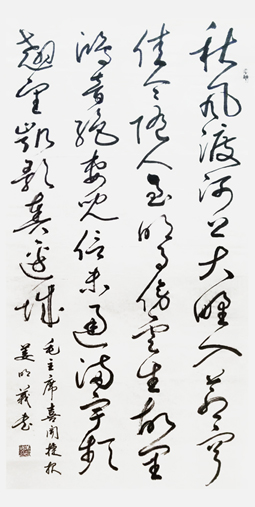 秋风渡河上大野入苍穹
佳令随人至明月傍云生故里
鸿音绝妻儿信未通满宇频
翘望凯歌奏边城
毛主席喜闻捷报
姜明義书